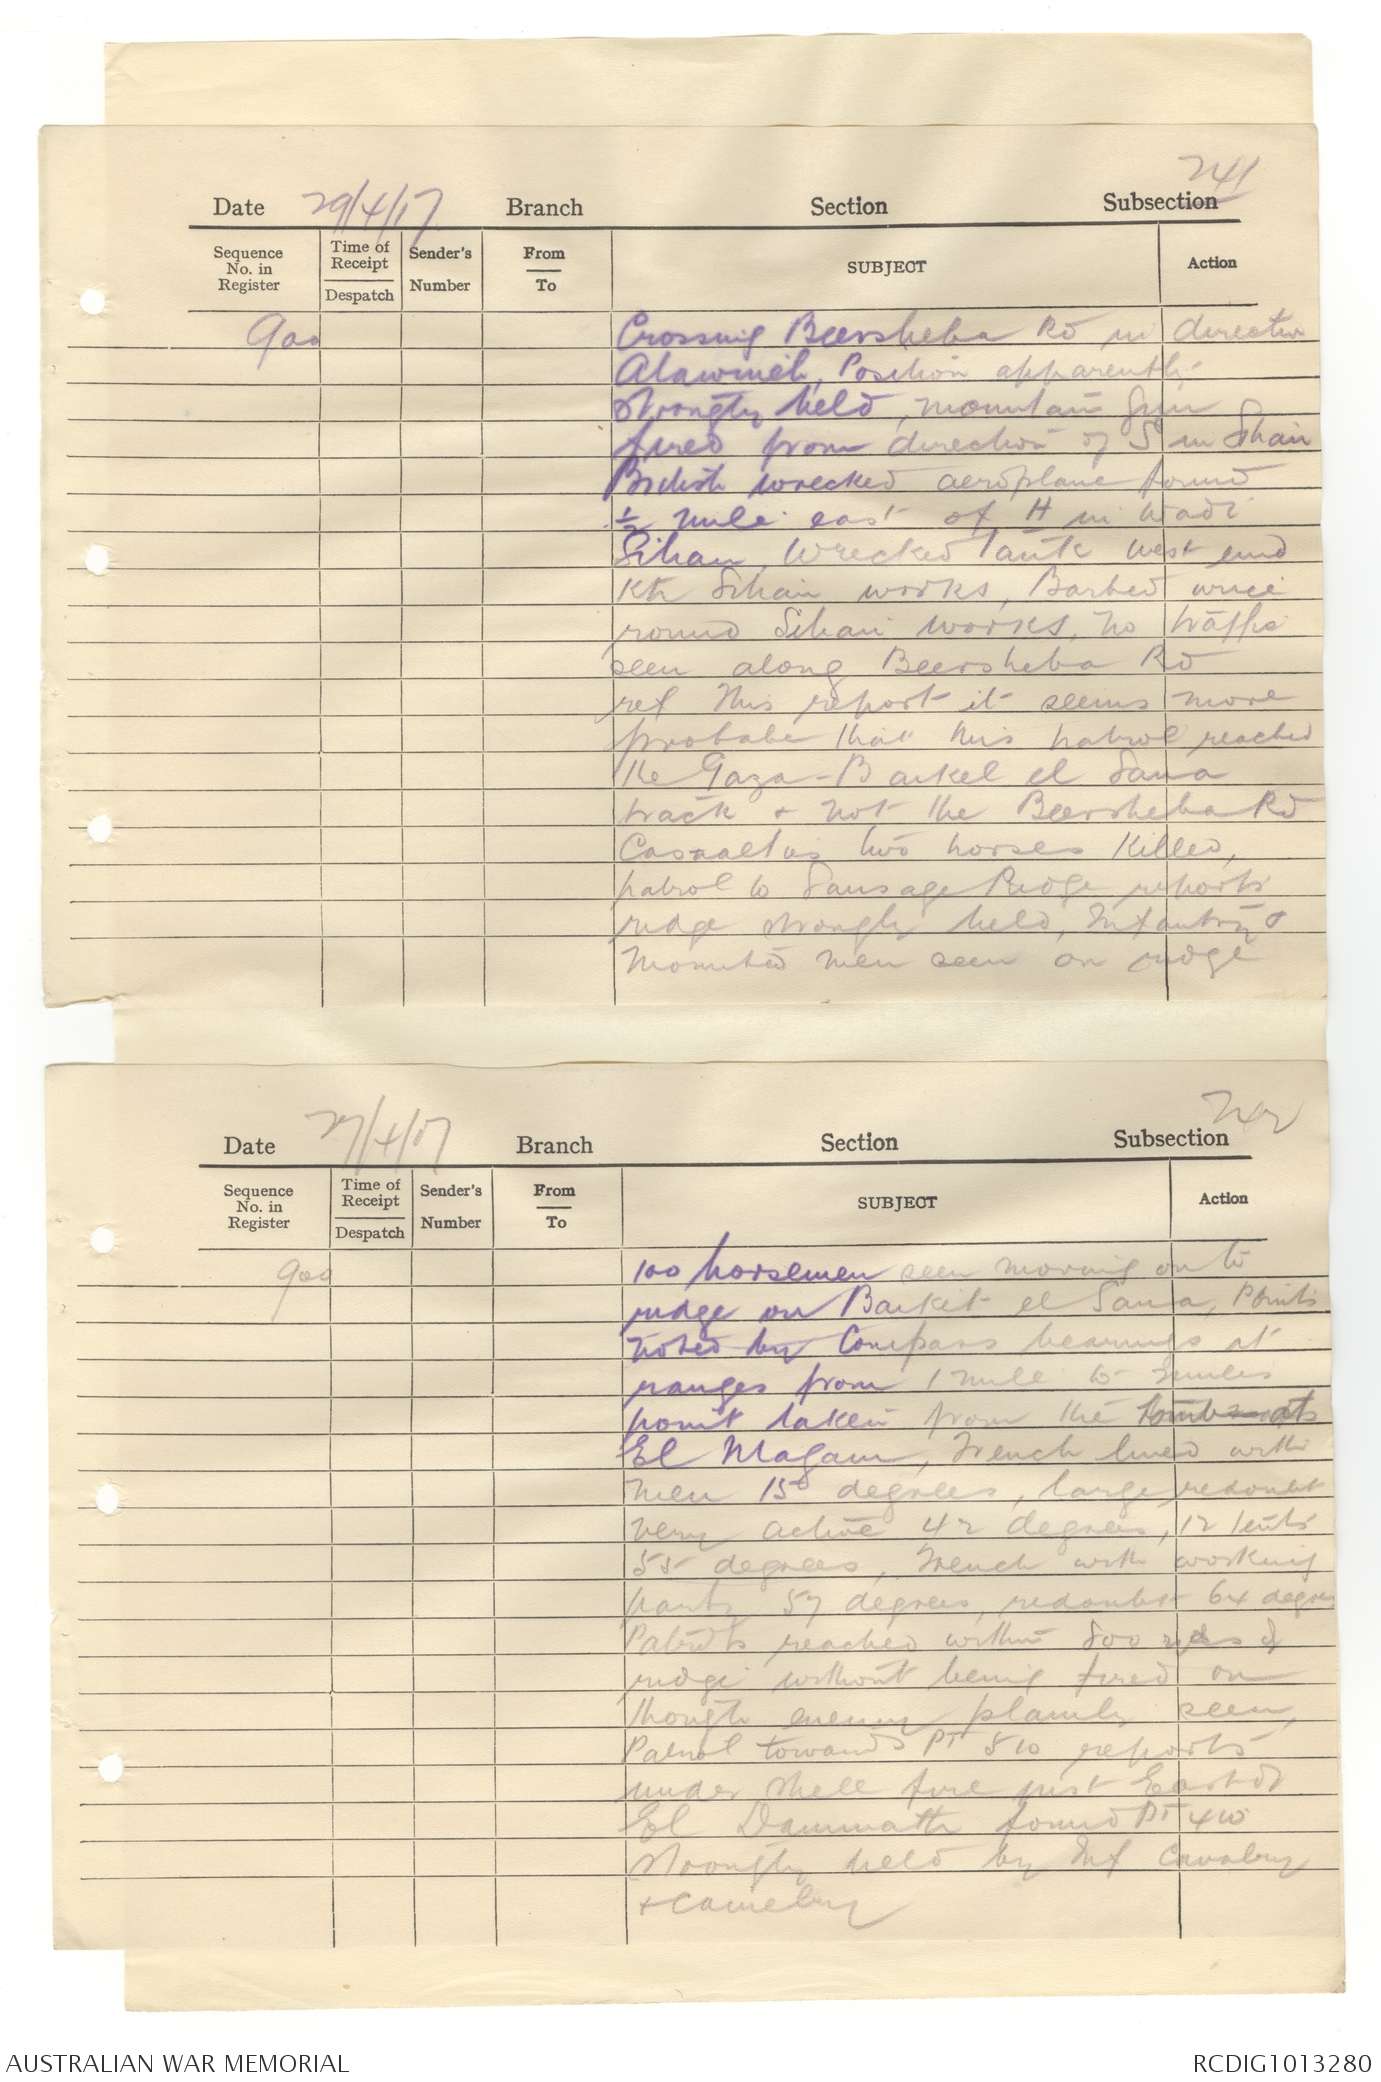 241
Date 29/4/17 Branch Section Subsection
Sequence No. in Register Time of Receipt Despatch Sender's Number From To SUBJECT Action
900 Crossing Beersheba Rd in direction
Atawineh, Position apparently
strongly held, mountain gun
fired from direction of S in Sihan
British wrecked aeroplane found
½ mile east of H in Wadi
Sihan, Wrecked Tank west end
Kh Sihan works, Barbed wire
round Sihan works, No traffic
seen along Beersheba Rd
ref This report it seems more
probabe that this patrol reached
the Gaza - Barkel el Sana
track & not the Beersheba Rd
Casualties two horses killed,
patrol to Sausage Ridge reports
ridge strongly held, Infantry &
Mounted men seen on ridge
242
Date 29/4/17 Branch Section Subsection
Sequence No. in Register Time of Receipt Despatch Sender's Number From To SUBJECT Action
900 100 horsemen seen moving on to
ridge on Barkit el Sana, Points
noted by Compass bearings at
ranges from 1 mile to 2 miles
point taken from the
El Magam, Trench lined with
men 150 degrees, large redoubt
very active 42 degrees, 12 tents
55 degrees, Trench with working
party 57 degrees, redoubt 64 degrees
Patrols reached within 800 yds of
ridge without being fired on
though enemy plainly seen,
Patrol towards PT 510 reports
under shell fire just East of
El Dammath found PT 410
strongly held by Inf Cavalry
& Camelry
AUSTRALIAN WAR MEMORIAL RCDIG1013280